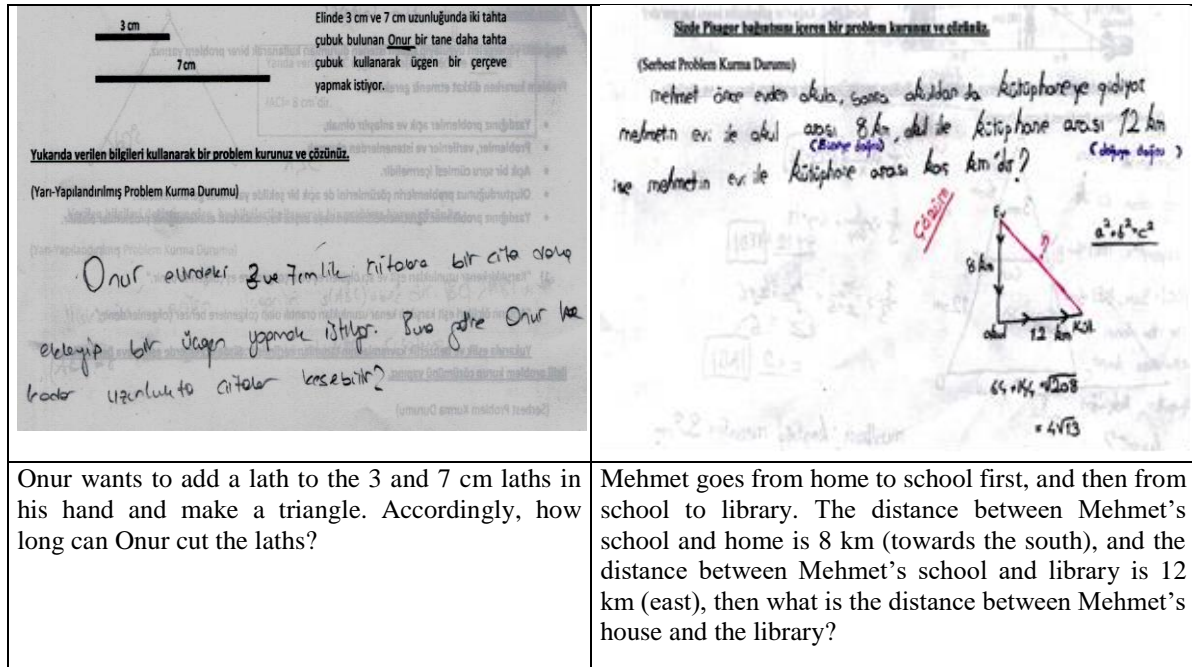 3 cm
7 cm
Elinde 3 cm ve 7 cm uzunluğunda iki tahta
çubuk bulunan Onur bir tane daha tahta
çubuk kullanarak üçgen bir çerçeve
yapmak istiyor.
Yukarıda verilen bilgileri kullanarak bir problem kurunuz ve çözünüz.
(Yarı-Yapılandırılmış Problem Kurma Durumu)
Onur elindeki 3 ve 7 cm lik bir çıta daha
ekleyip bir üçgen yapmak istiyor. Buna göre Onur ne
kadar uzunlukta çıtalar kesebilir?
Sizde Pisagor bağıntısını içeren bir problem kurunuz ve çözünüz.
(Serbest Problem Kurma Durumu)
mehmet önce evden okula, sonra okuldan da kütüphaneye gidiyor
mehmetin evi ile okul arası 8 km, okul ile kütüphane arası 12 km
(doğuya doğru)
ise mehmetin evi ile kütüphane arası kaç km'dir?
Çözüm
Ev
a²+b²=c²
8 km
?
okul
12 km
Küt.
64+144=√208
=4√13
Onur wants to add a lath to the 3 and 7 cm laths in
his hand and make a triangle. Accordingly, how
long can Onur cut the laths?
Mehmet goes from home to school first, and then from
school to library. The distance between Mehmet's
school and home is 8 km (towards the south), and the
distance between Mehmet's school and library is 12
km (east), then what is the distance between Mehmet's
house and the library?